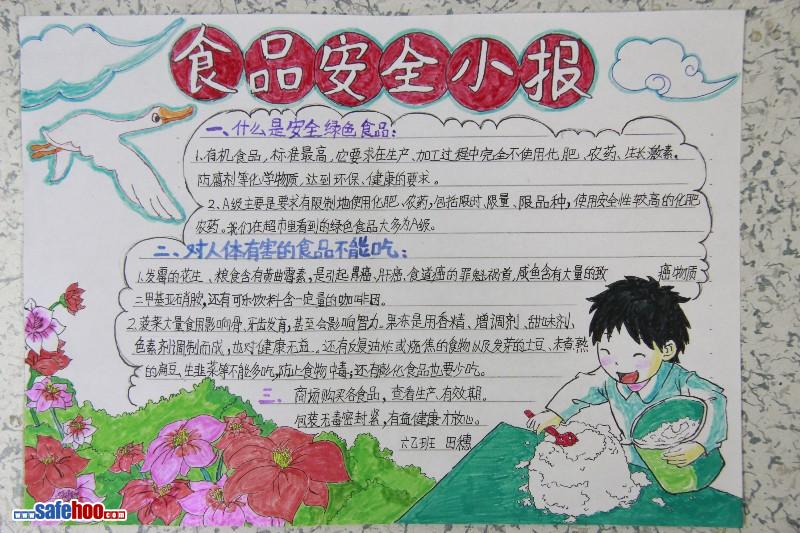 食品安全小报
一、什么是安全绿色食品：
1.有机食品，标准最高，它要求在生产、加工过程中完全不使用化肥、农药、生长激素，
防腐剂等化学物质，达到环保、健康的要求。
2、A级主要是要求有限制地使用化肥、农药，包括限时、限量、限品种，使用安全性较高的化肥
农药。我们在超市里看到的绿色食品大多为A级。
二、对人体有害的食品不能吃：
1.发霉的花生、粮食含有黄曲霉素，是引起胃癌、肝癌、食道癌的罪魁祸首，咸鱼含有大量的致 癌物质
二甲基亚硝胺，还有可乐饮料含一定量的咖啡因。
2.菠菜大量食用影响骨、牙齿发育，甚至会影响智力。果冻是用香精、增调剂、甜味剂、
色素剂调制而成，也对健康无益.。还有反复油炸或烧焦的食物以及发芽的土豆、未煮熟
的扁豆、生韭菜等不能多吃，防止食物中毒，还有膨化食品也要少吃。
三、 商场购买各食品，查看生产、有效期。
包装无毒密封紧，有益健康才放心。
六乙班 田穗
www.safehoo.com